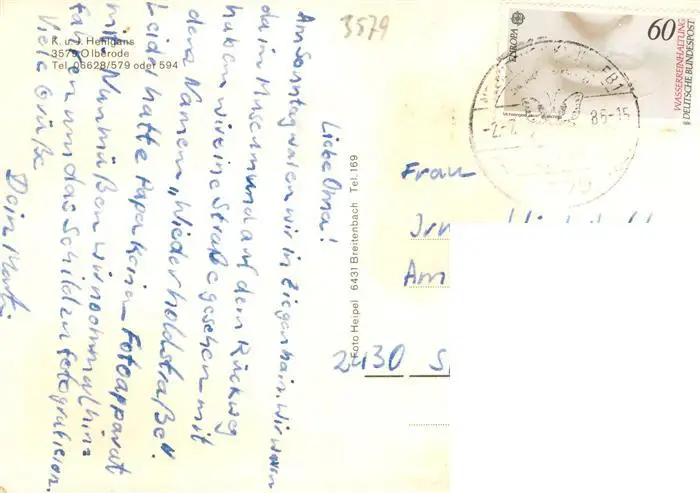 3579
K. u. J. Henigans
3579 Olberode
Tel. 06628/579 oder 594
Liebe Oma!
Am Sonntag waren wir in Ziegenhain. Wir waren
da im Museum und auf dem Rückweg
haben wir eine Straße gesehen mit
dem Namen „Wiederholdstraße".
Leider hatte Papa keinen Fotoapparat
mit. Nun müßen wir nochmal hin=
fahren um das Schild zu fotografieren.
Viele Grüße
Dein
Foto Heipel 6431 Breitenbach Tel. 169
EUROPA
60
WASSERREINHALTUNG
DEUTSCHE BUNDESPOST
86-15
Frau
Am
2430